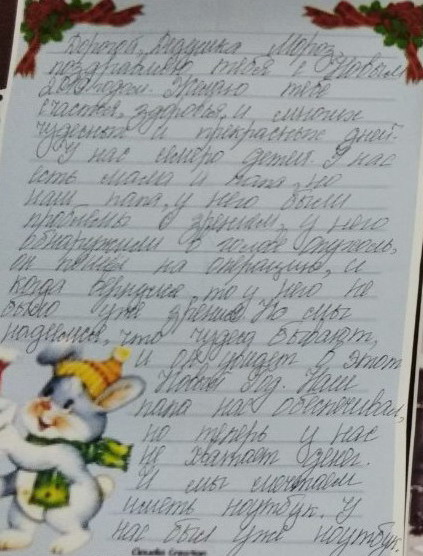 Дорогой, Дедушка Мороз,
поздравляю тебя с Новым
годом. Желаю тебе
счастья, здоровья, и многих
чудесных и прекрасных дней.
У нас семеро детей. У нас
есть мама и папа, но
наш папа, у него были
проблемы с зрением, у него
обнаружили в голове опухоль,
он пошёл на операцию, и
когда вернулся то у него не
было уже зрение. Но мы
надеемся, что чудеса бывают,
и он увидет в этот
Новый Год. Наш
папа нас обеспечивал,
но теперь у нас
не хватает денег.
И мы мечтаем
иметь ноутбук. У
нас был уже ноутбук,